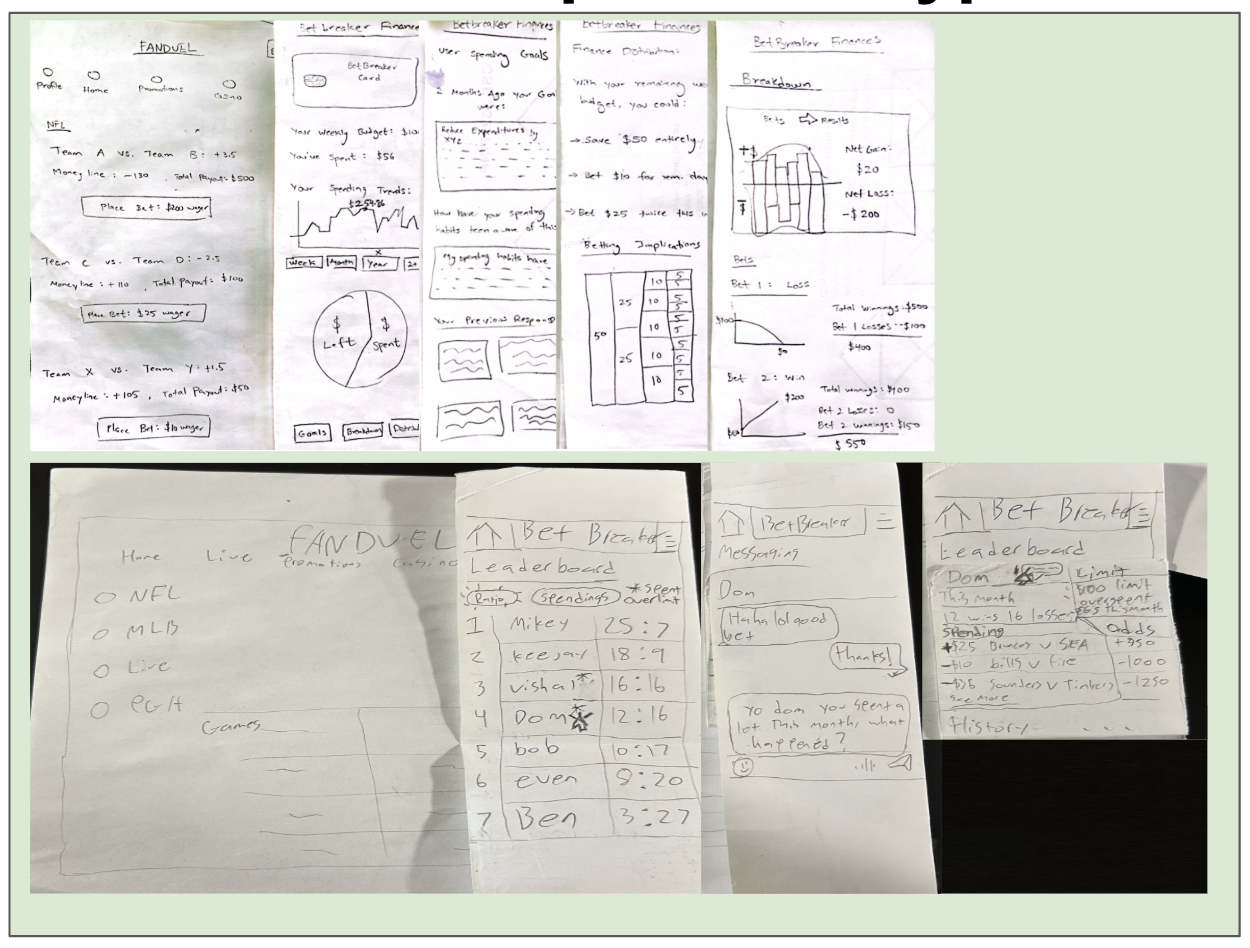 FANDUEL
Profile Home Promotions Casino
NFL
Team A vs. Team B: +3.5
Moneyline: -130, Total Payout: $500
Place Bet: $200 wager
Team C vs. Team D: -2.5
Moneyline: +110, Total Payout: $100
Place Bet: $25 wager
Team X vs. Team Y: +1.5
Moneyline: +105, Total Payout: $50
Place Bet: $10 wager
Bet breaker Finance
BetBreaker
Card
Your Weekly Budget: $10
You've Spent: $56
Your Spending Trends:
$254.86
X
Week Month Year 2+
$ Left
$ Spent
Goals Breakdown
Betbreaker Finances
User Spending Goals
2 Months Ago your Goa
were:
Reduce Expenditures by
XYZ
How have your spending
habits been aware of this
My spending habits have
Your Previous Respons
Betbreaker Finances
Finance Distribution:
With your remaining
budget, you could:
→ Save $50 entirely
→ Bet $10 for rem. day
→ Bet $25 twice this
Betting Implications
50
25
25
10
10
10
10
10
5
5
5
5
5
5
5
5
5
5
BetBreaker Finances
Breakdown
Bets ⇨ Results
+$
-$
Net Gain:
$20
Net Loss:
-$200
Bets
Bet 1: Loss
$100
$0
Total winnings: $500
Bet 1 Losses: -$100
$400
Bet 2: Win
$200
Total winnings: $400
Bet 2 Losses: 0
Bet 2 Winnings: $150
$550
FANDUEL
Home Live Promotions Casino
NFL
MLB
Live
PGA
Games
Bet Breake
Leaderboard
Ratio Spendings * Spent
overlimit
1 Mikey 25:7
2 keejay 18:9
3 vishal* 16:16
4 Dom* 12:16
5 bob 10:17
6 even 9:20
7 Ben 3:27
BetBreaker
Messaging
Dom
Haha lol good
bet
thanks!
Yo dom you spent a
lot this month, what
happened?
Bet Breake
Leaderboard
Dom Limit
This month $100 limit
overspent
$65 this month
12 wins 16 losses
Spending Odds
+$25 Broncos v SEA +350
-$10 bills v fire -1000
-$35 Sounders v Timbers -1250
see more
History - ...